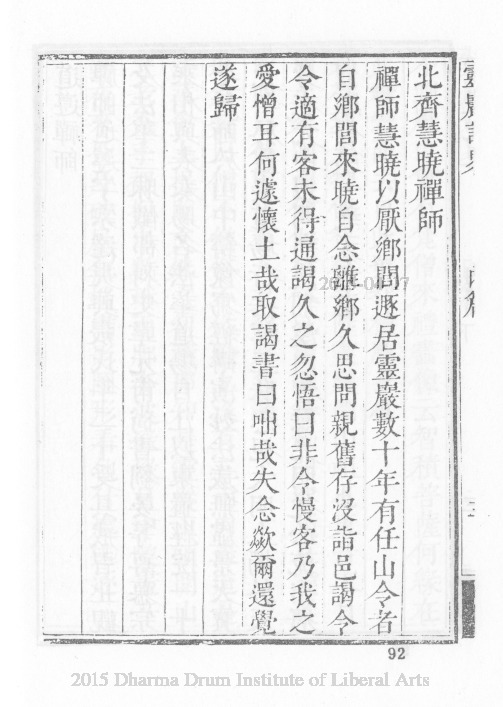 北齊慧曉禪師
禪師慧曉以厭鄉閭遯居靈巖數十年有任山令者
自鄉閭來曉自念離鄉久思問親舊存沒詣邑謁令
令適有客未得通謁久之忽悟曰非令慢客乃我之
愛憎耳何遽懷土哉取謁書曰咄哉失念歘爾還覺
遂歸
92
2015 Dharma Drum Institute of Liberal Arts